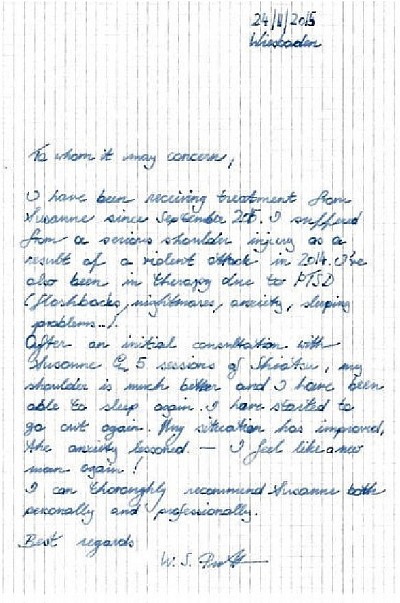 24/11/2015
Wiesbaden
To whom it may concern,
I have been receiving treatment from
Susanne since September 2015. I suffered
from a serious shoulder injury as a
result of a violent attack in 2014. I've
also been in therapy due to PTSD
(flashbacks, nightmares, anxiety, sleeping
problems...).
After an initial consultation with
Susanne & 5 sessions of Shiatsu, my
shoulder is much better and I have been
able to sleep again. I have started to
go out again. My situation has improved,
the anxiety lessened. — I feel like a new
man again!
I can thoroughly recommend Susanne both
personally and professionally.
Best regards
W. S.